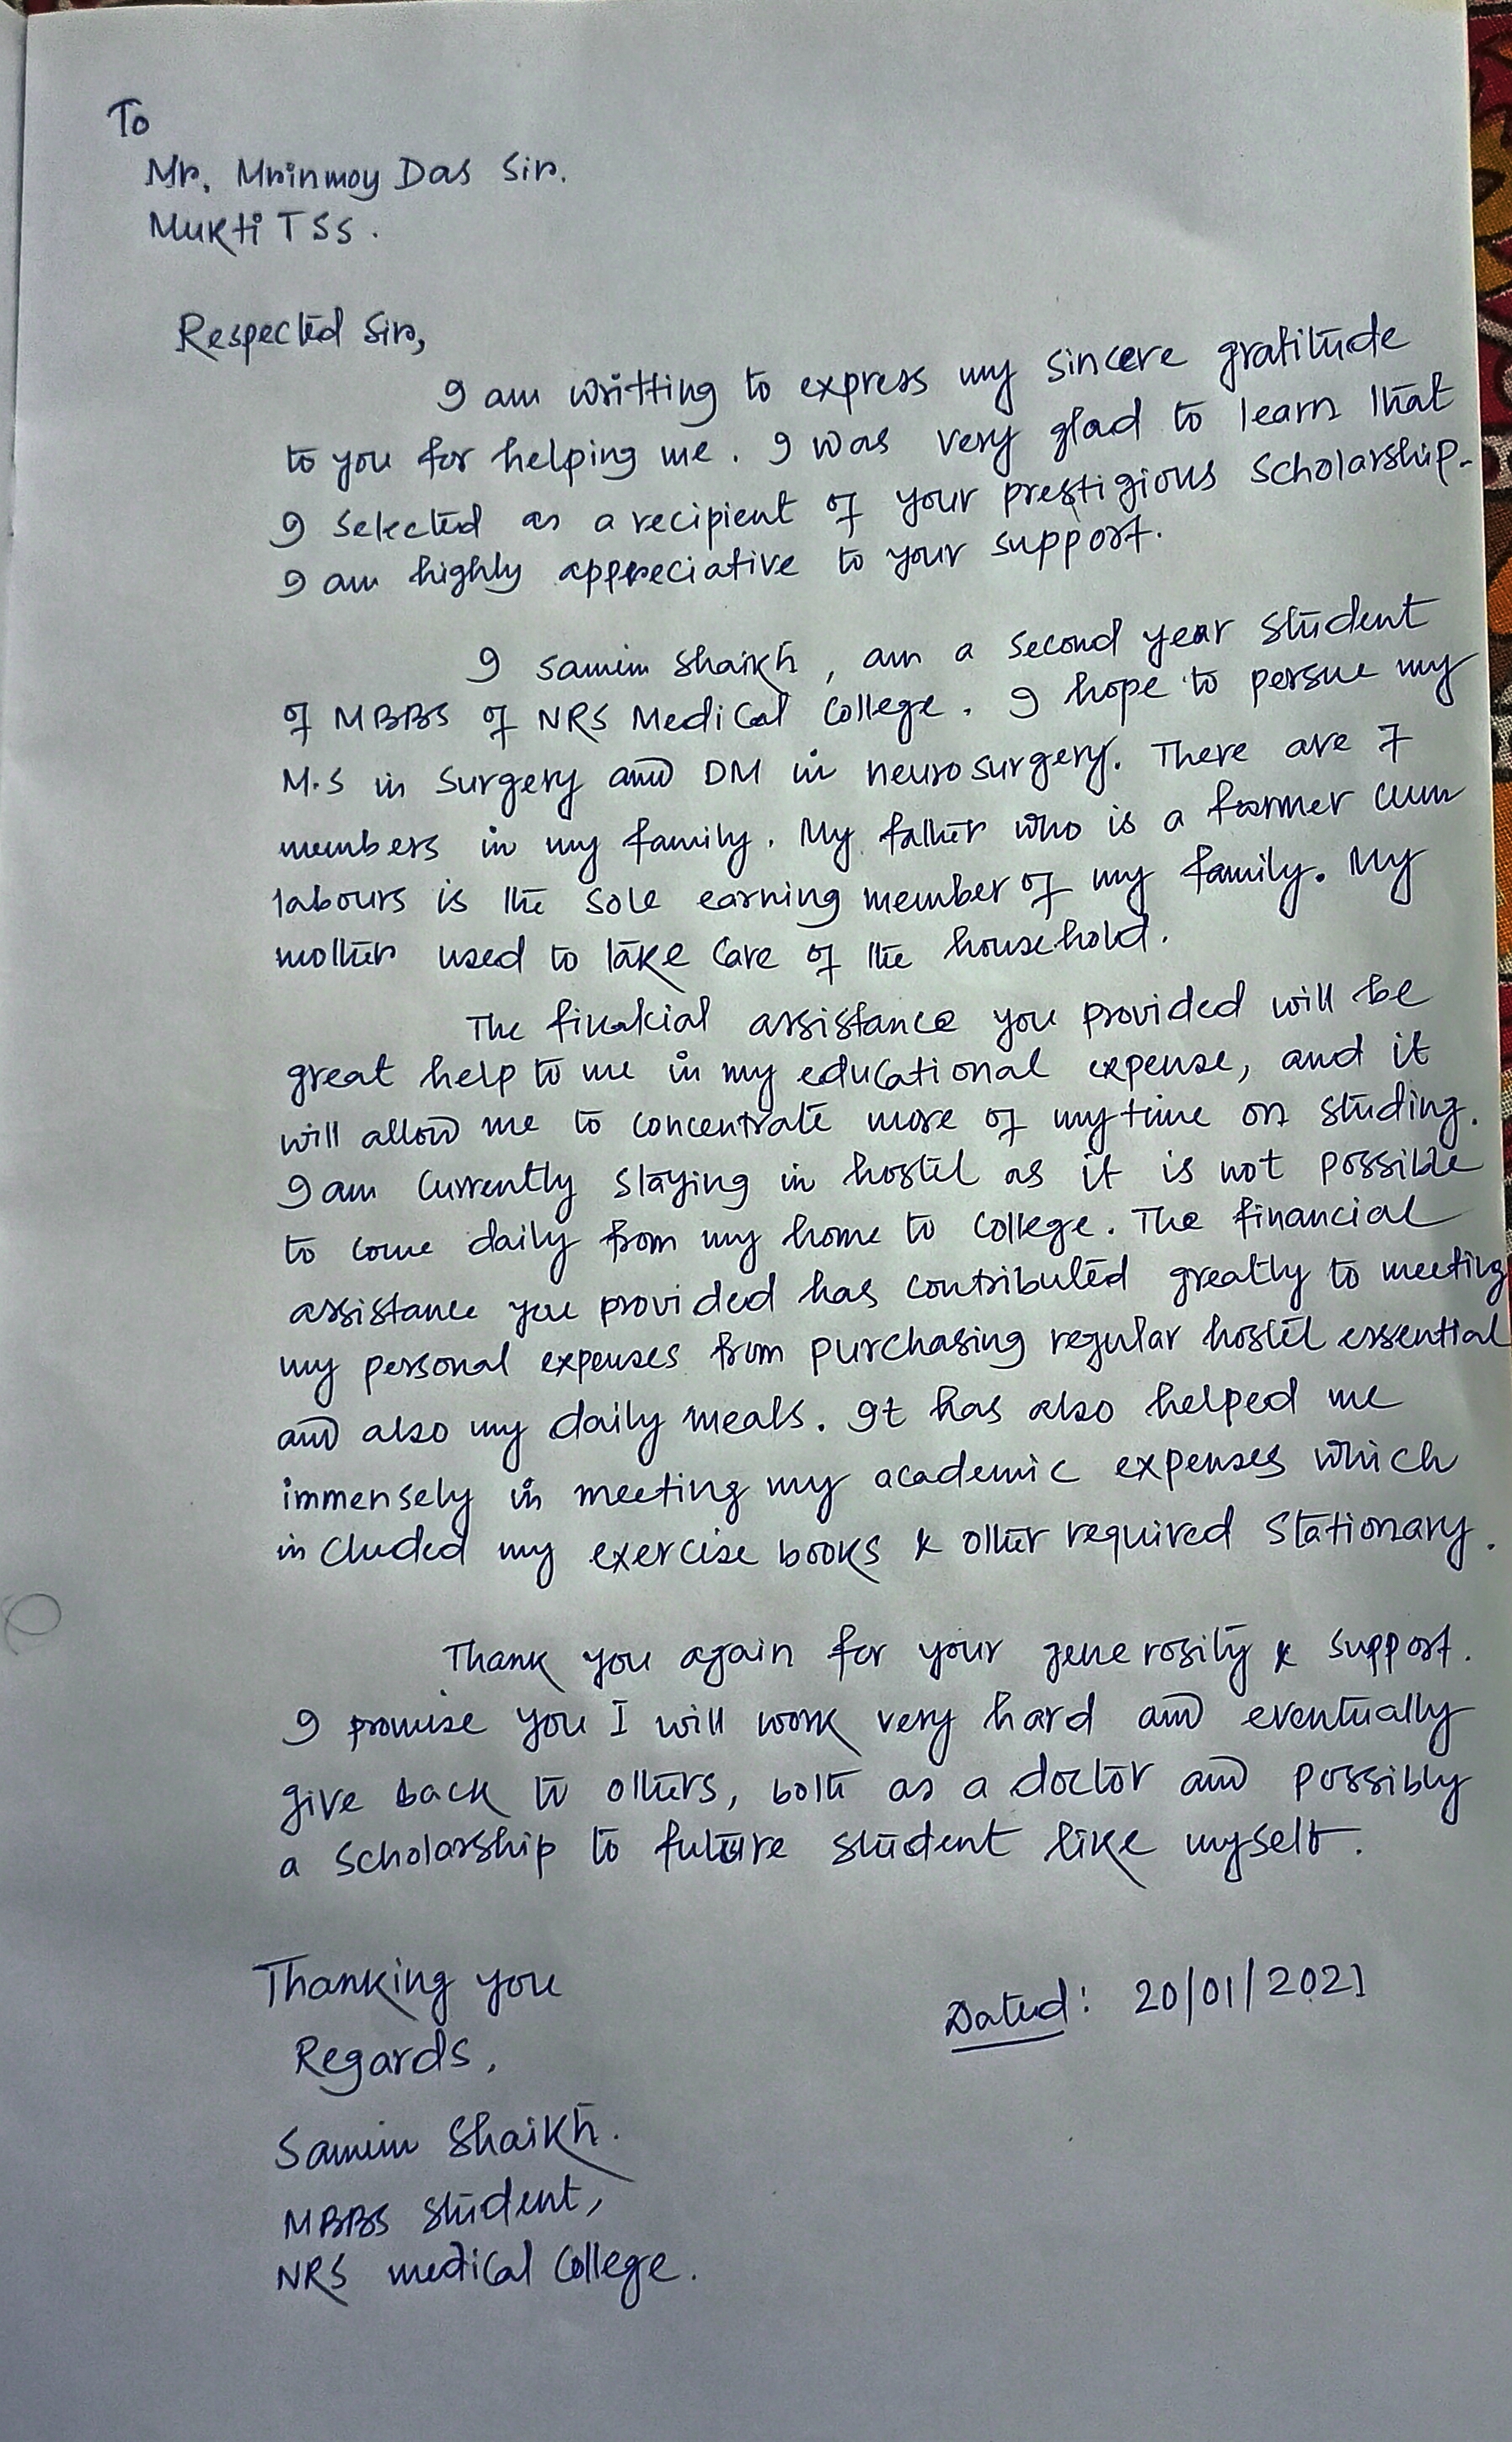 To
Mr. Mrinmoy Das Sir.
Mukti TSS.
Respected Sir,
I am writting to express my sincere gratitude
to you for helping me. I was very glad to learn that
I selected as a recipient of your prestigious scholarship.
I am highly appreciative to your support.
I Samim Shaikh, am a second year student
of MBBS of NRS Medical College. I hope to persue my
M.S in Surgery and DM in neurosurgery. There are 7
members in my family. My father who is a farmer cum
labours is the sole earning member of my family. My
mother used to take care of the household.
The finakcial assistance you provided will be
great help to me in my educational expense, and it
will allow me to concentrate more of my time on studing.
I am currently staying in hostel as it is not possible
to come daily from my home to college. The financial
assistance you provided has contributed greatly to meeting
my personal expenses from purchasing regular hostel essential
and also my daily meals. It has also helped me
immensely in meeting my academic expenses which
included my exercise books & other required stationary.
Thank you again for your generosity & support.
I promise you I will work very hard and eventually
give back to others, both as a doctor and possibly
a scholarship to future student like myself.
Thanking you
Dated: 20/01/2021
Regards,
Samim Shaikh.
MBBS student,
NRS medical College.